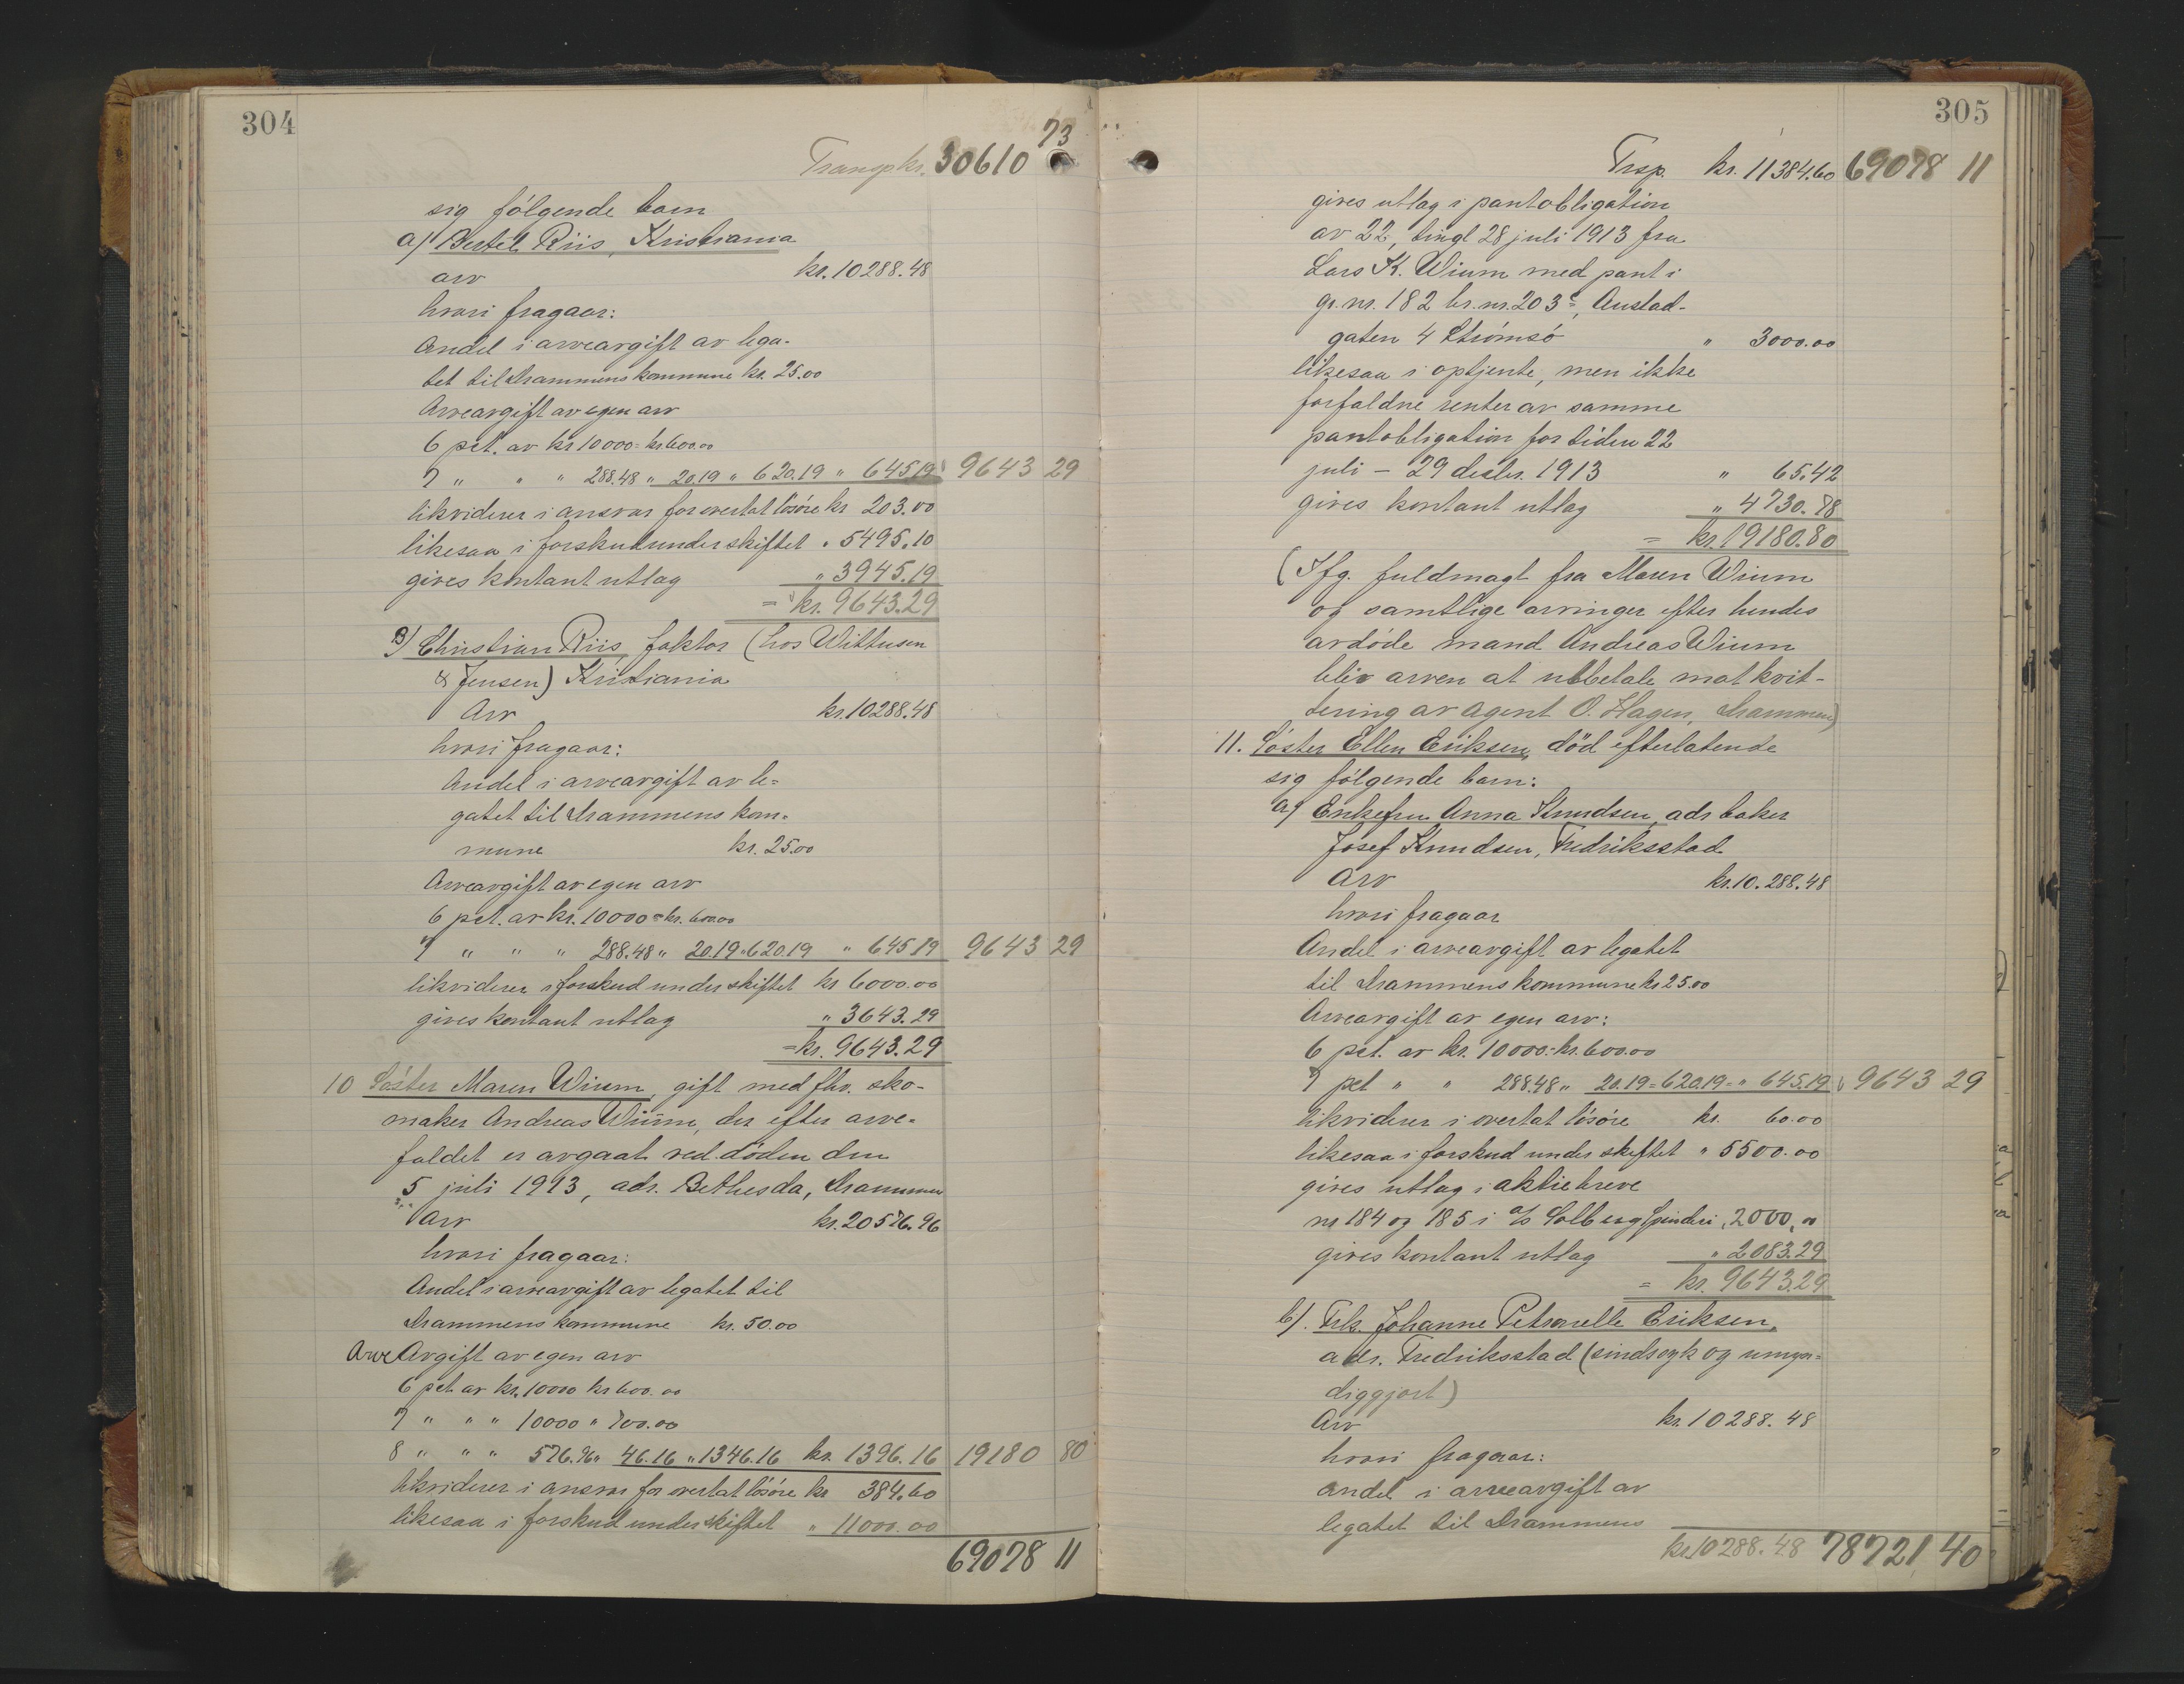 304
73
Transp kr. 30610
sig følgende barn
a) Bertel Riis, Kristiania
arv kr. 10288.48
hvori fragaar:
Andel i arveavgift av lega-
tet til Drammens kommune kr. 25.00
Arveavgift av egen arv
6 pct. av kr 10000 = kr. 600.00
7 " " " 288.48 " 20.19 " 620.19 " 645.19 9643 29
likviderer i ansvar for overtat lösöre kr 203.00
likesaa i forskud under skiftet " 5495.10
gives kontant utlag " 3945.19
= kr. 9643.29
B) Christian Riis, faktor (hos Wittusen
& Jensen) Kristiania
Arv kr. 10288.48
hvori fragaar:
Andel i arveavgift av le=
gatet til Drammens kom=
mune kr. 25.00
Arveavgift av egen arv
6 pct. av kr. 10000 = kr. 600.00
7 " " " 288.48 " 20.19 " 620.19 " 645.19 9643 29
likviderer i forskud under skiftet kr 6000.00
gives kontant utlag " 3643.29
= kr. 9643.29
10 Søster Maren Wium, gift med fhv. sko-
maker Andreas Wium, der efter arve=
faldet er avgaat ved døden den
5 juli 1913, adr. Bethesda, Drammen
Arv kr. 20576.96
hvori fragaar:
Andel i arveavgift av legatet til
Drammens kommune kr. 50.00
Arve Avgift av egen arv
6 pct av kr. 10000 kr 600.00
7 " " " 10000 " 700.00
8 " " " 576.96 " 46.16 " 1346.16 kr. 1396.16 19180 80
likviderer i ansvar for overtat lösöre kr 384.60
likesaa i forskud under skiftet " 11000.00
69078 11
305
Trsp. kr. 11384.60 69078 11
gives utlag i pantobligation
av 22, tingl 28 juli 1913 fra
Lars K. Wium med pant i
gr. nr. 182 br. nr. 203 c, Austad-
gaten 4 Strømsö " 3000.00
likesaa i optjente, men ikke
forfaldne renter av samme
pantobligation for tiden 22
juli - 29 decbr. 1913 " 65.42
gives kontant utlag " 4730.78
= kr. 19180.80
(Ifg. fuldmagt fra Maren Wium
og samtlige arvinger efter hendes
avdøde mand Andreas Wium
blir arven at utbetale mot kvit-
tering av agent O. Hagen, Drammen)
11. Søster Ellen Eriksen, död efterlatende
sig følgende barn:
a) Enkefru Anna Knudsen, adr baker
Josef Knudsen, Fredriksstad
Arv kr. 10.288.48
hvori fragaar
Andel i arveavgift av legatet
til Drammens kommune kr 25.00
Arveavgift av egen arv:
6 pct. av kr. 10000 = kr. 600.00
7 pct " " 288.48 " 20.19 = 620.19 = " 645.19 9643 29
likviderer i overtat lösöre kr. 60.00
likesaa i forskud under skiftet " 5500.00
gives utlag i aktiebreve
nr 184 og 185 i a/s Solberg Spinderi " 2000.00
gives kontant utlag " 2083.29
= kr. 9643.29
b). Frk. Johanne Petronelle Eriksen,
adr. Fredriksstad (sindssyk og umyn=
diggjort)
Arv kr. 10288.48
hvori fragaar:
andel i arveavgift av
legatet til Drammens
kr. 10288.48 78721 40